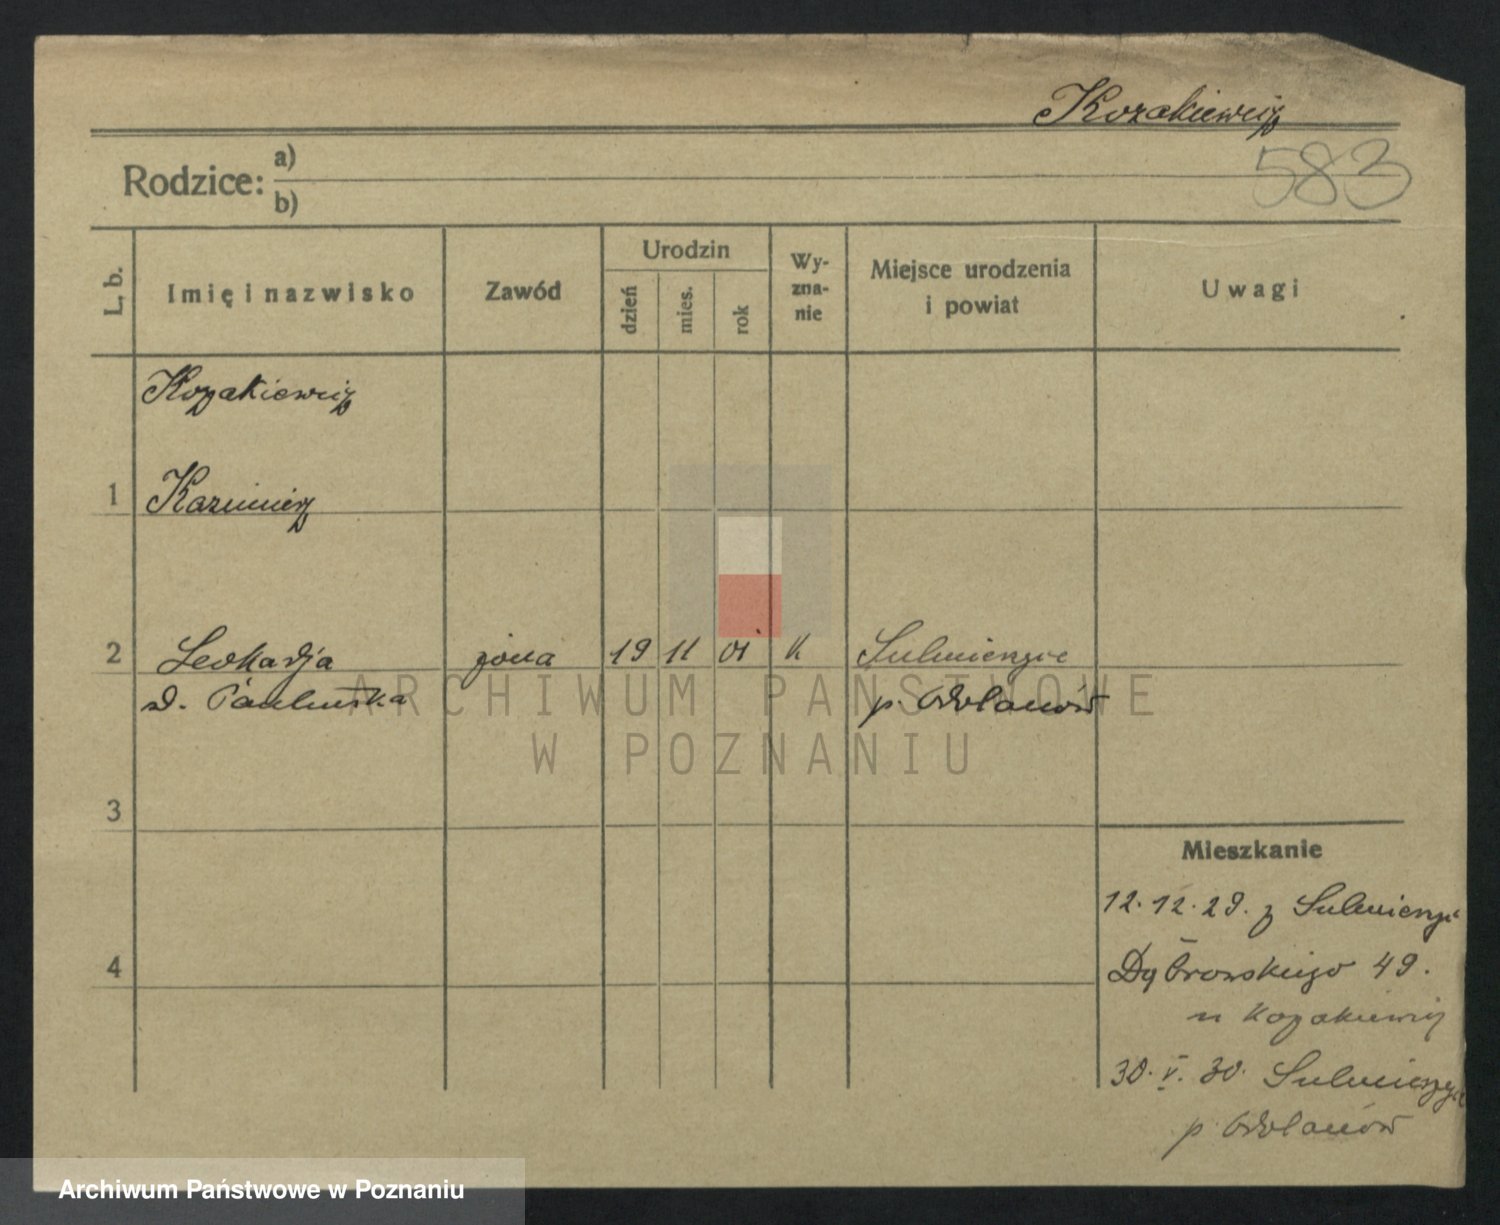 Kozakiewicz
583
Rodzice: a)
b)
L. b.
Imię i nazwisko
Zawód
Urodzin
dzień
mies.
rok
Wy-
zna-
nie
Miejsce urodzenia
i powiat
Uwagi
Kozakiewicz
1 Kazimierz
2 Leokadja żona 19 11 01 K Sulmierzyce
p. Odolanów
3
4
Mieszkanie
12.12.29. z Sulmierzyc
Dąbrowskiego 49.
u Kozakiewicz
30. V. 30. Sulmierzyce
p. Odolanów
ARCHIWUM PAŃSTWOWE
W POZNANIU
Archiwum Państwowe w Poznaniu